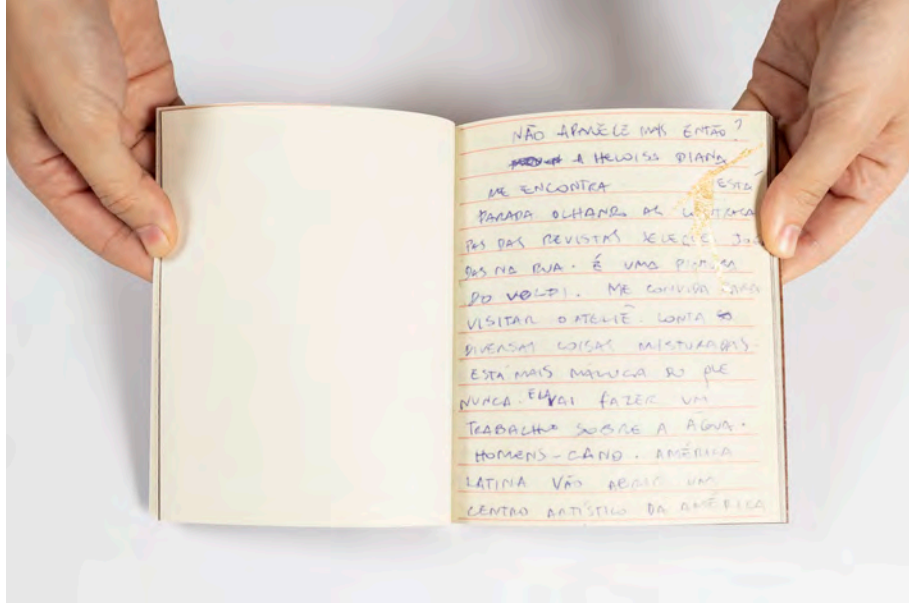 NÃO APARECE MAIS ENTÃO?
A HELOISS DIANA
ME ENCONTRA ESTÁ
PARADA OLHANDO AS CONTRACA
PAS DAS REVISTAS SELEÇÕE JOG
DAS NA RUA. É UMA PINTURA
DO VOLPI. ME CONVIDA PARA
VISITAR O ATELIÊ. CONTA
DIVERSAS COISAS MISTURADAS.
ESTÁ MAIS MALUCA DO QUE
NUNCA. ELA VAI FAZER UM
TRABALHO SOBRE A ÁGUA.
HOMENS-CANO. AMÉRICA
LATINA VÃO ABRIR UM
CENTRO ARTÍSTICO DA AMÉRICA